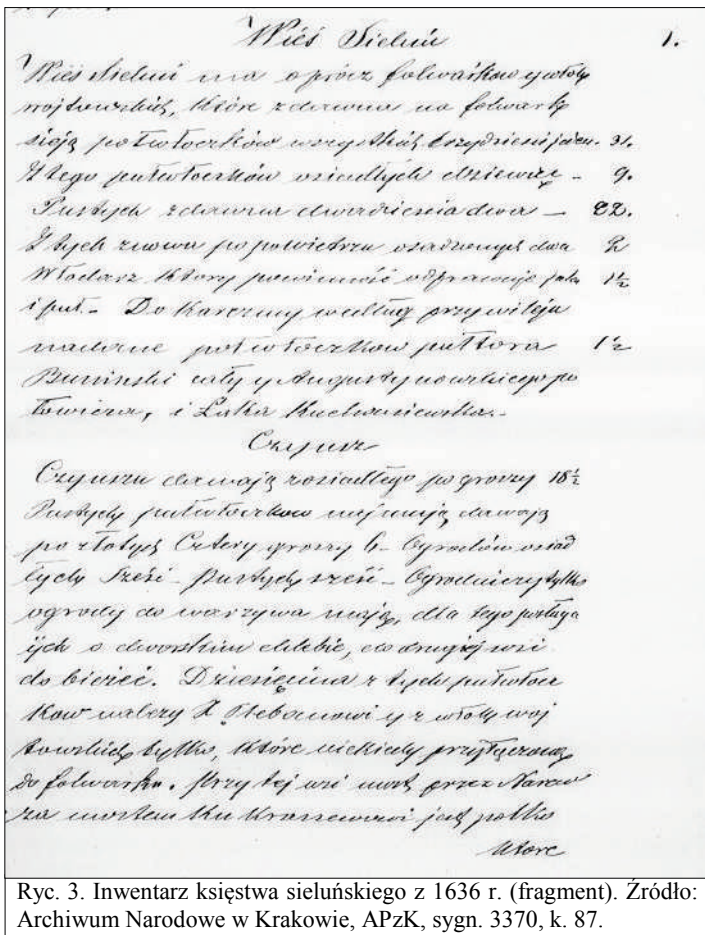 Wieś Sieluń 1.
Wieś Sieluń ma oprócz folwarków y włók
wojtowskich, które zdawna na folwark
sieją półwłoczków wszystkich trzydzieści jeden. 31.
Z tego pułwłoczków osiadłych dziewięć – 9.
Pustych zdawna dwadzieścia dwa – 22.
Z tych znowu po powietrzu osadzonych dwa 2
Włodarz który powinność odprawuje jako 1½
i puł. – Do Karczmy według przywileja
nadane półwłoczków pułtora 1½
cały y Augustynowskiego po
i Łąka
Czynsz
Czynszu dawają z osiadłego po groszy 18½
Pustych pułwłoczkow najmują, dawają
po złotych Cztery groszy 6. Ogrodów osiad
łych sześć – pustych sześć – Ogrodniczy tylko
ogrody do warzywa mają, dla tego posługa
ich o dworskim chlebie, do drugiej wsi
do bieżeć. Dziesięcina z tych pułwłocz
kow należy X Plebanowi y z włók woj
towskich tylko, które niekiedy przyłączono
do folwarku. Przy tej wsi most przez Narew
za mostem ku Krasnewowi jest
które
Ryc. 3. Inwentarz księstwa sieluńskiego z 1636 r. (fragment). Źródło:
Archiwum Narodowe w Krakowie, APzK, sygn. 3370, k. 87.